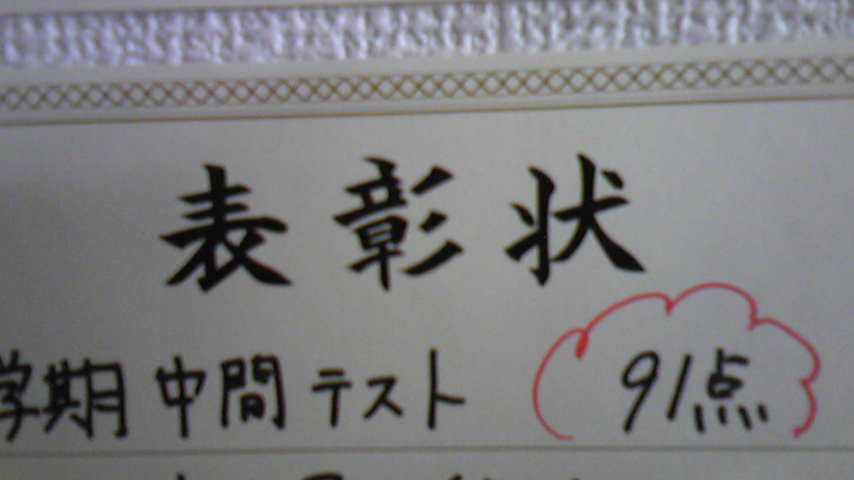 表彰状
学期中間テスト 91点